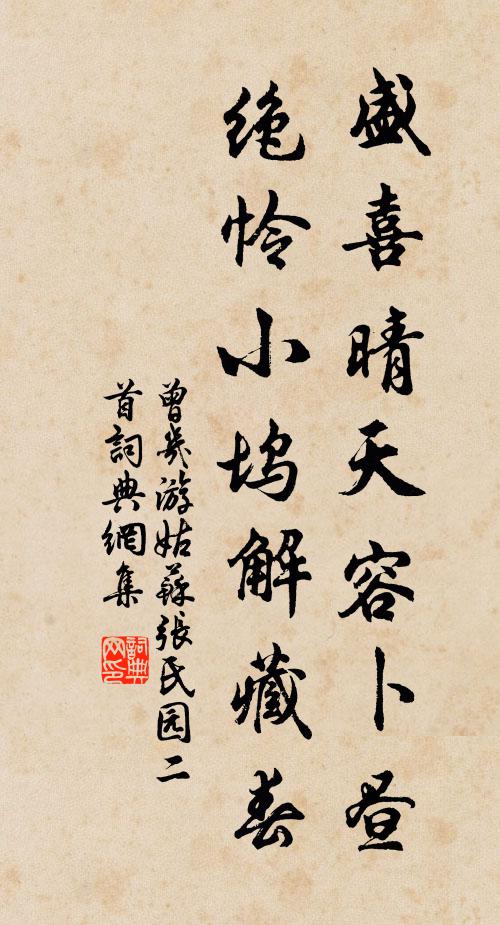 盛喜晴天容卜昼
绝怜小坞解藏春
曾幾游姑蘇張氏园二
首詞典網集
詞典网印